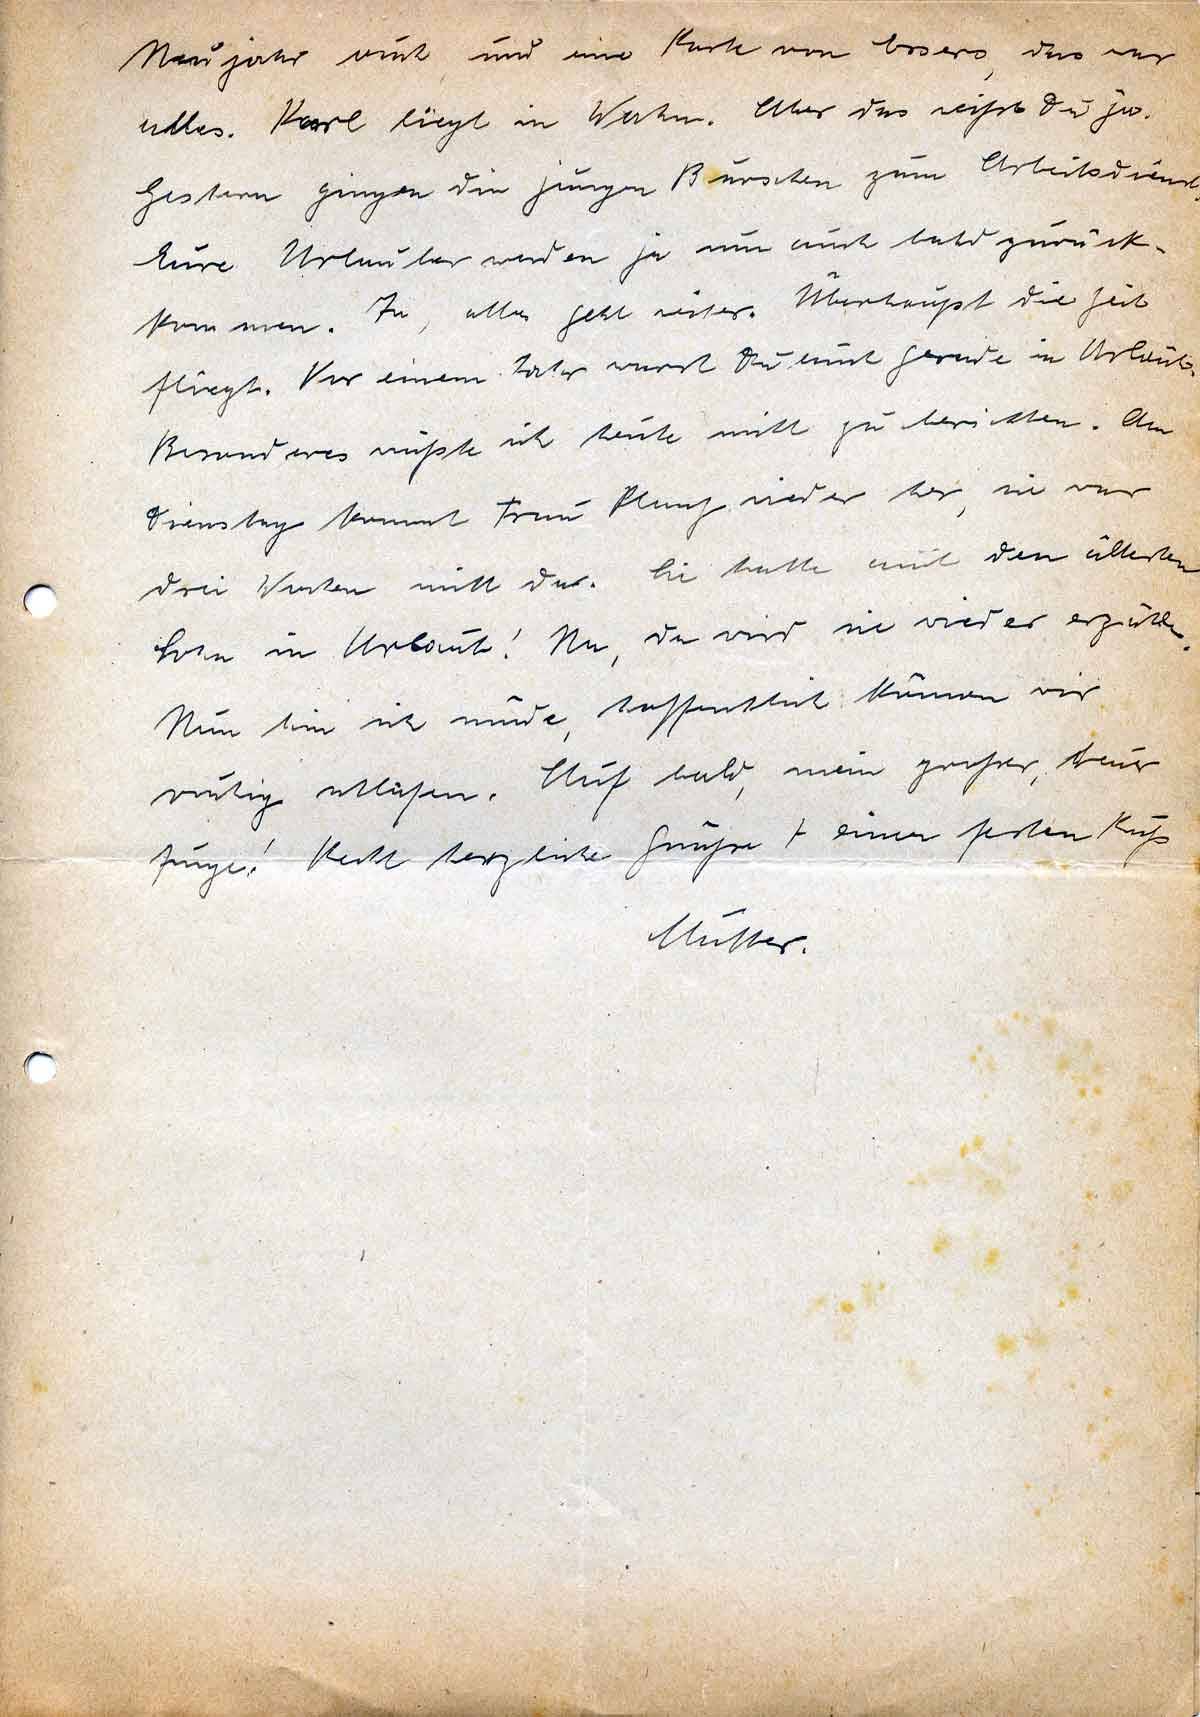 Neujahr auch und eine Karte von Essers, das war
alles. Karl liegt in Wesken. Aber das weißt Du ja.
Gestern gingen die jungen Burschen zum Arbeitsdienst.
Eure Urlauber werden ja nun auch bald zurück-
kommen. Ja, alles geht weiter. Überhaupt die Zeit
fliegt. Vor einem Jahr warst Du auch gerade in Urlaub.
Besonderes wüßte ich heute nicht zu berichten. Am
Dienstag kommt Frau Planz wieder her, sie war
drei Wochen nicht da. Sie hatte auch den ältesten
Sohn in Urlaub! Na, da wird sie wieder erzählen.
Nun bin ich müde, hoffentlich können wir
ruhig schlafen. Auf bald, mein großer, treuer
Junge! Recht herzliche Grüße + einen festen Kuß
Mutter.